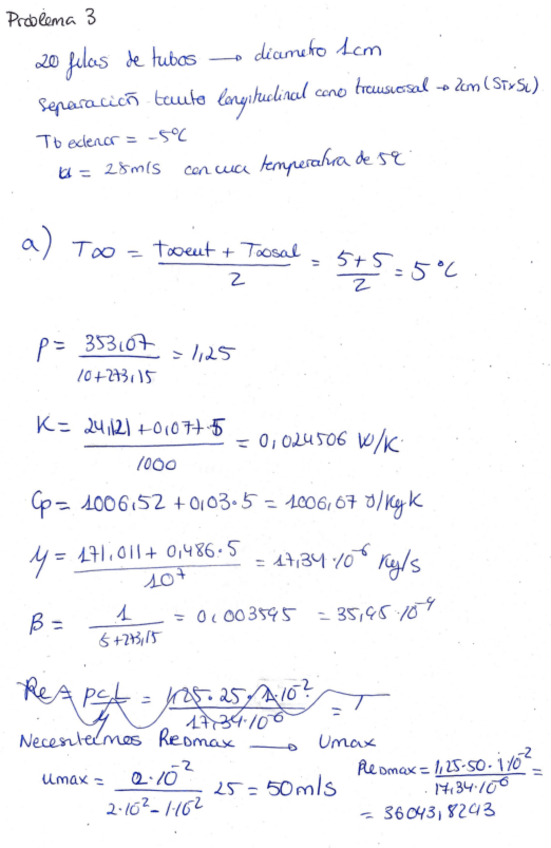 Problema 3
20 filas de tubos → diametro 1cm
Separación tanto longitudinal como transversal → 2cm (STxSL)
Tb exterior = -5ºC
u = 25m/s con una temperatura de 5ºC
a) T∞ = (T∞ent + T∞sal)/2 = (5+5)/2 = 5ºC
ρ = 353,07/(10+273,15) = 1,25
K = (24,121 + 0,077·5)/1000 = 0,024506 W/K
Cp = 1006,52 + 0,03·5 = 1006,67 J/kgK
μ = (171,011 + 0,486·5)/10⁷ = 17,34·10⁻⁶ Kg/s
β = 1/(5+273,15) = 0,003595 = 35,95·10⁻⁴
Re = ρcL/μ = 1,25·25·1·10⁻²/17,34·10⁻⁶ =
Necesitamos ReDmax → Umax
umax = 2·10⁻²/(2·10⁻²-1·10⁻²) 25 = 50m/s
ReDmax = 1,25·50·1·10⁻²/17,34·10⁻⁶ =
= 36043,8293